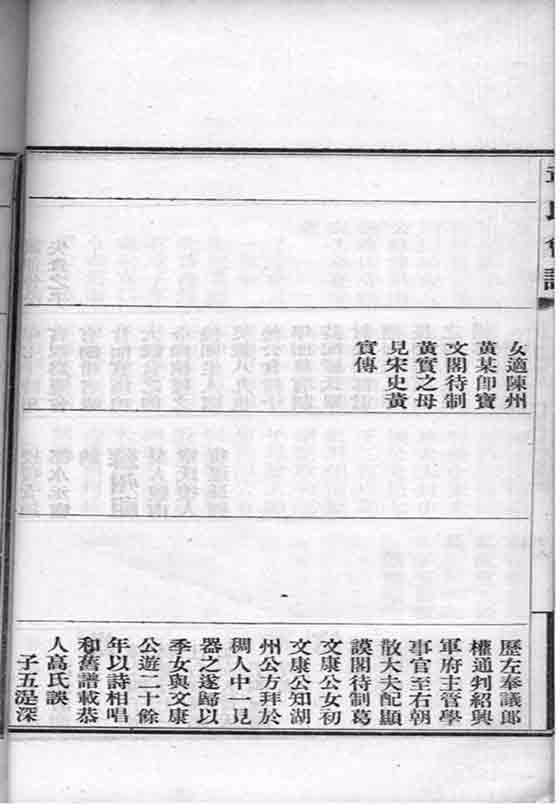 章氏會譜
女適陳州
黃某卽寶
文閣待制
黃實之母
見宋史黃
實傳
歷左奉議郎
權通判紹興
軍府主管學
事官至右朝
散大夫配顯
謨閣待制葛
文康公女初
文康公知湖
州公方拜於
稠人中一見
器之遂歸以
季女與文康
公遊二十餘
年以詩相唱
和舊譜載恭
人高氏誤
子五湜深